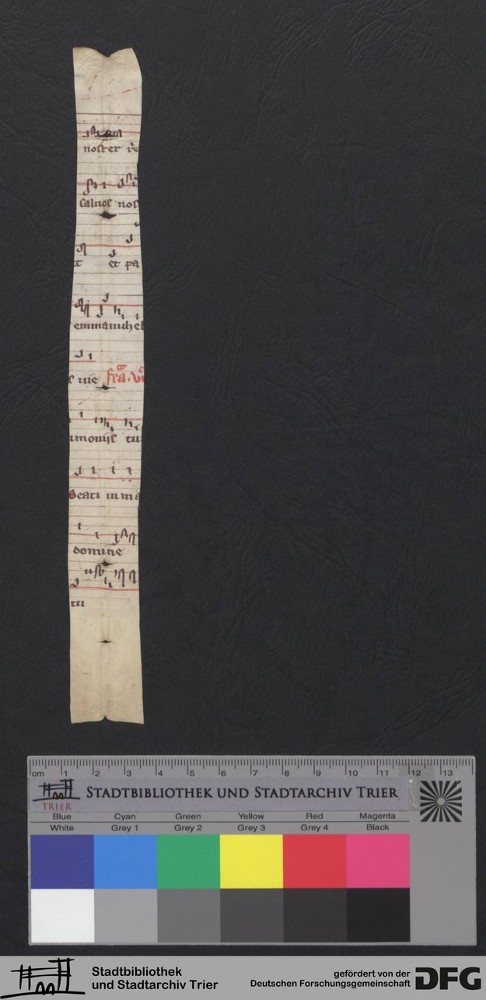 noster
saluos nos
et pa
emmanuhel
s uie
imoniis tu
Beati inma
domine
cm 1 2 3 4 5 6 7 8 9 10 11 12 13
TRIER STADTBIBLIOTHEK UND STADTARCHIV TRIER
Blue Cyan Green Yellow Red Magenta
White Grey 1 Grey 2 Grey 3 Grey 4 Black
Stadtbibliothek
und Stadtarchiv Trier
gefördert von der
Deutschen Forschungsgemeinschaft DFG